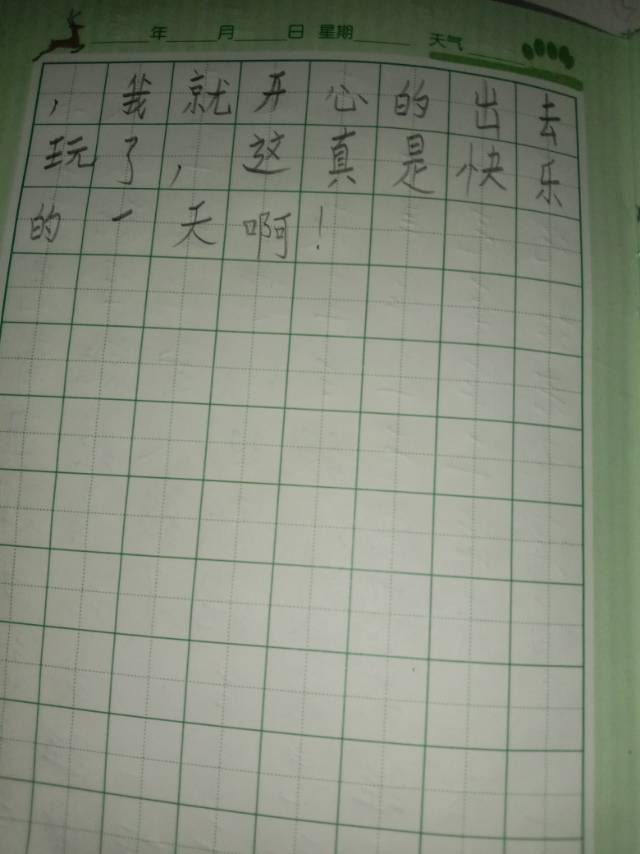 年 月 日 星期 天气
，我就开心的出去
玩了，这真是快乐
的一天啊！